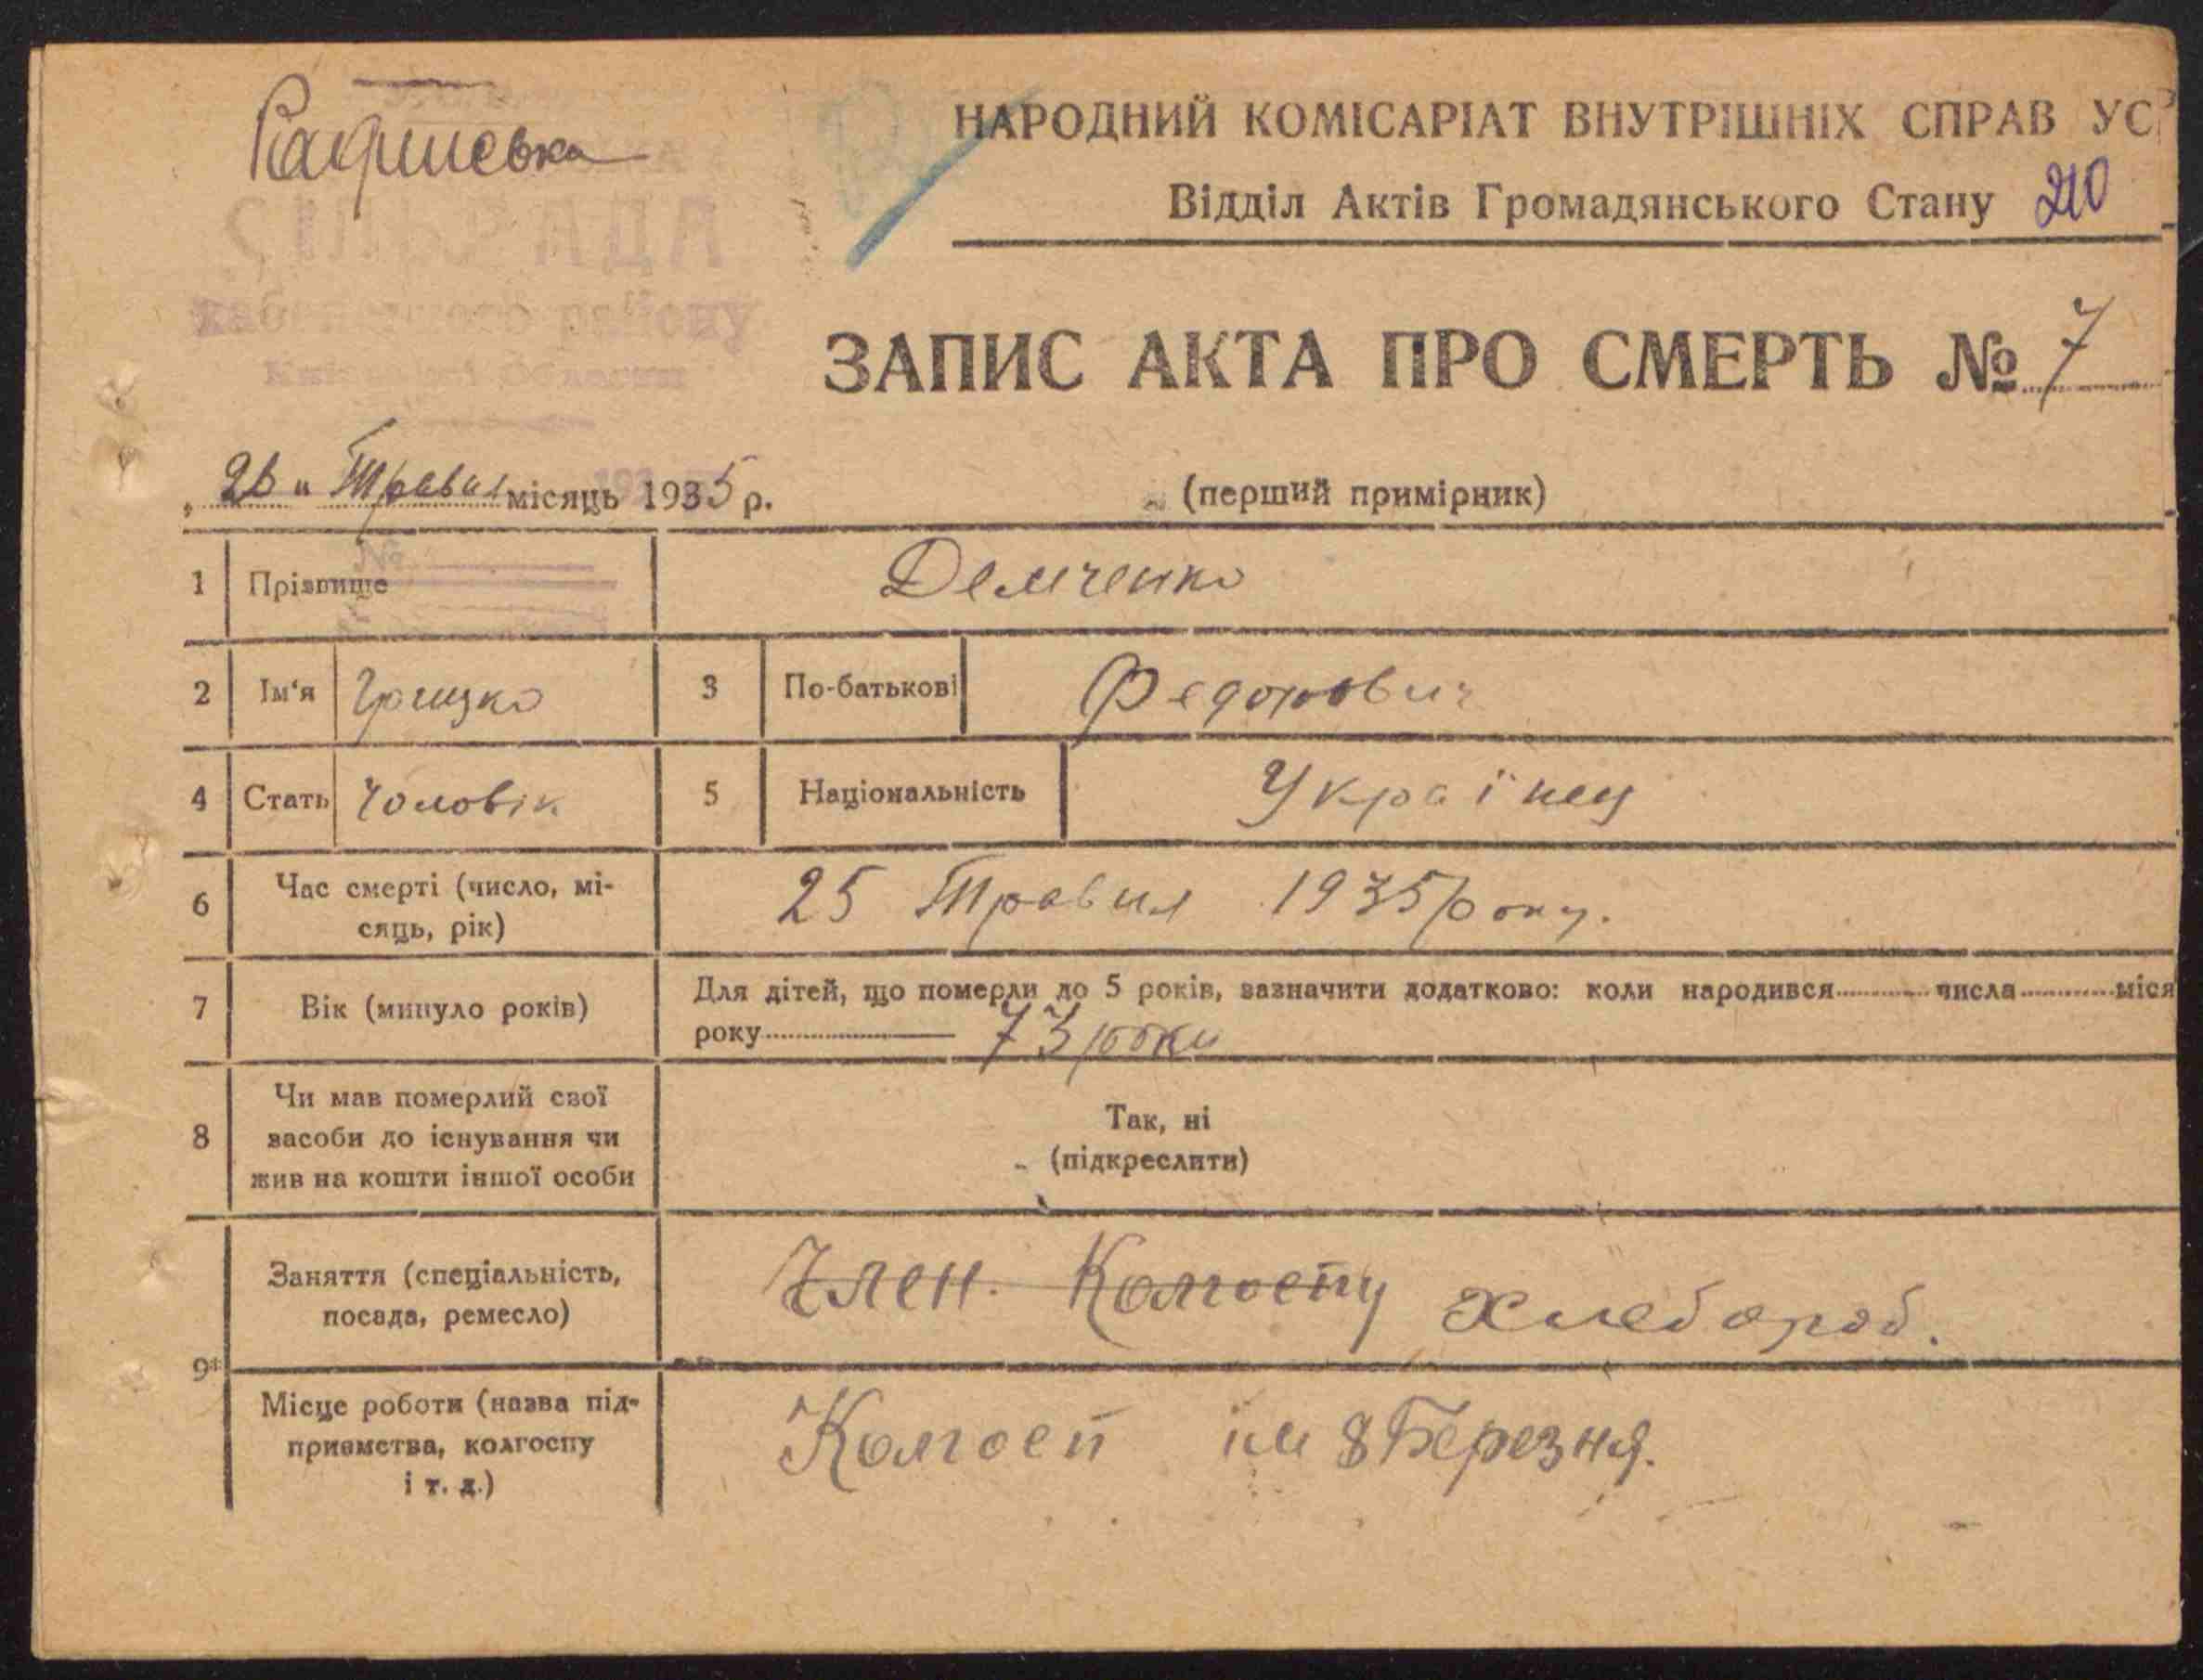 НАРОДНИЙ КОМІСАРІАТ ВНУТРІШНІХ СПРАВ УС
Відділ Актів Громадянського Стану 210
СІЛЬРАДА
району
Области
ЗАПИС АКТА ПРО СМЕРТЬ № 7
„ " Травня місяць 1935 р.
(перший примірник)
№
1 Прізвище Демченко
2 Ім'я Грицко 3 По-батькові Федорович
4 Стать Чоловік 5 Національність Українец
6 Час смерті (число, мі-
сяць, рік) 25 Травня 1935 Року.
7 Вік (минуло років) Для дітей, що померли до 5 років, зазначити додатково: коли народився числа міся
року 73 роки
8 Чи мав померлий свої
засоби до існування чи
жив на кошти іншої особи
Так, ні
(підкреслити)
9* Заняття (спеціальність,
посада, ремесло) Член. Колгоспу Хлебороб.
Місце роботи (назва під-
приємства, колгоспу
і т. д.) Колгосп ім 8 Березня.